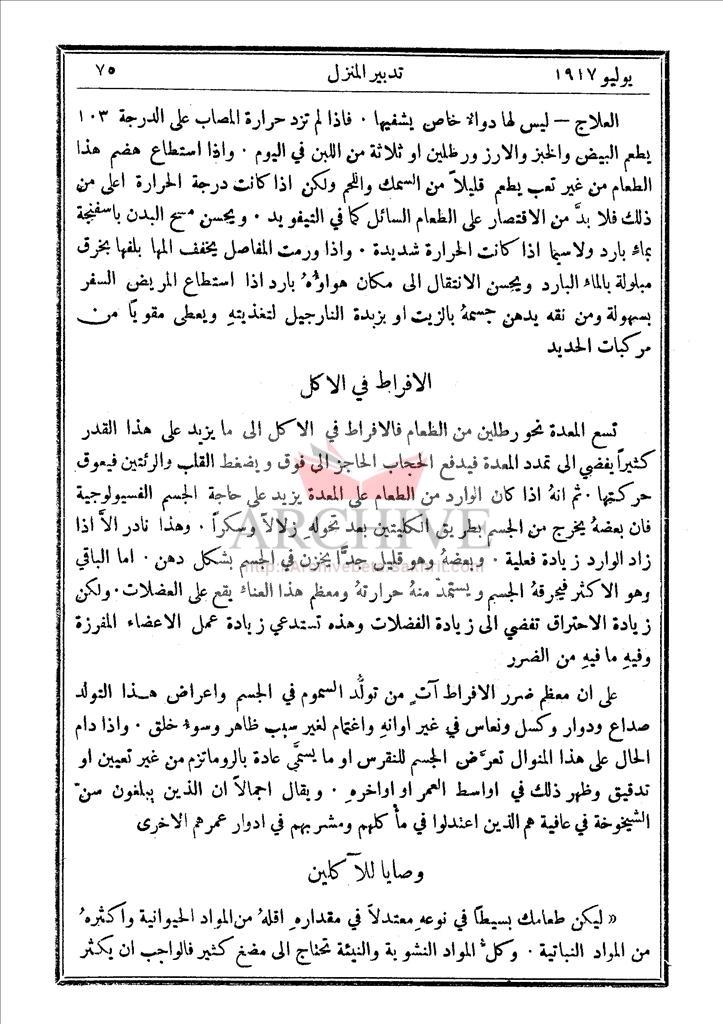 يوليو ١٩١٧ تدبير المنزل ٧٥
العلاج — ليس لها دواء خاص يشفيها . فاذا لم تزد حرارة المصاب على الدرجة ١٠٣
يطعم البيض والخبز والارز ورطلين او ثلاثة من اللبن في اليوم . واذا استطاع هضم هذا
الطعام من غير تعب يطعم قليلاً من السمك واللحم ولكن اذا كانت درجة الحرارة اعلى من
ذلك فلا بدَّ من الاقتصار على الطعام السائل كما في التيفويد . ويحسن مسح البدن باسفنجة
بماء بارد ولاسيما اذا كانت الحرارة شديدة . واذا ورمت المفاصل يخفف المها بلفها بخرق
مبلولة بالماء البارد ويحسن الانتقال الى مكان هواؤهُ بارد اذا استطاع المريض السفر
بسهولة ومن نقه يدهن جسمهُ بالزيت او بزبدة النارجيل لتغذيتهِ ويعطى مقوياً من
مركبات الحديد
الافراط في الاكل
تسع المعدة نحو رطلين من الطعام فالافراط في الاكل الى ما يزيد على هذا القدر
كثيراً يفضي الى تمدد المعدة فيدفع الحجاب الحاجز الى فوق ويضغط القلب والرئتين فيعوق
حركتها . ثم انهُ اذا كان الوارد من الطعام على المعدة يزيد على حاجة الجسم الفسيولوجية
فان بعضهُ يخرج من الجسم بطريق الكليتين بعد تحولهِ زلالاً وسكراً . وهذا نادر الاَّ اذا
زاد الوارد زيادة فعلية . وبعضهُ وهو قليل جدًّا يخزن في الجسم بشكل دهن . اما الباقي
وهو الاكثر فيحرقهُ الجسم ويستمدّ منهُ حرارتهُ ومعظم هذا العناء يقع على العضلات . ولكن
زيادة الاحتراق تفضي الى زيادة الفضلات وهذه تستدعي زيادة عمل الاعضاء المفرزة
وفيهِ ما فيهِ من الضرر
على ان معظم ضرر الافراط آتٍ من تولُّد السموم في الجسم واعراض هذا التولد
صداع ودوار وكسل ونعاس في غير اوانهِ واغتمام لغير سبب ظاهر وسوء خلق . واذا دام
الحال على هذا المنوال تعرَّض الجسم للنقرس او ما يسمَّى عادة بالروماتزم من غير تعيين او
تدقيق وظهر ذلك في اواسط العمر او اواخرهِ . ويقال اجمالاً ان الذين يبلغون سنّ
الشيخوخة في عافية هم الذين اعتدلوا في مأكلهم ومشربهم في ادوار عمرهم الاخرى
وصايا للآكلين
« ليكن طعامك بسيطاً في نوعهِ معتدلاً في مقدارهِ اقلهُ من المواد الحيوانية واكثرهُ
من المواد النباتية . وكل المواد النشوية والنيئة تحتاج الى مضغ كثير فالواجب ان يكثر
ARCHIVE
http://Archivebeta.Sakhrit.com